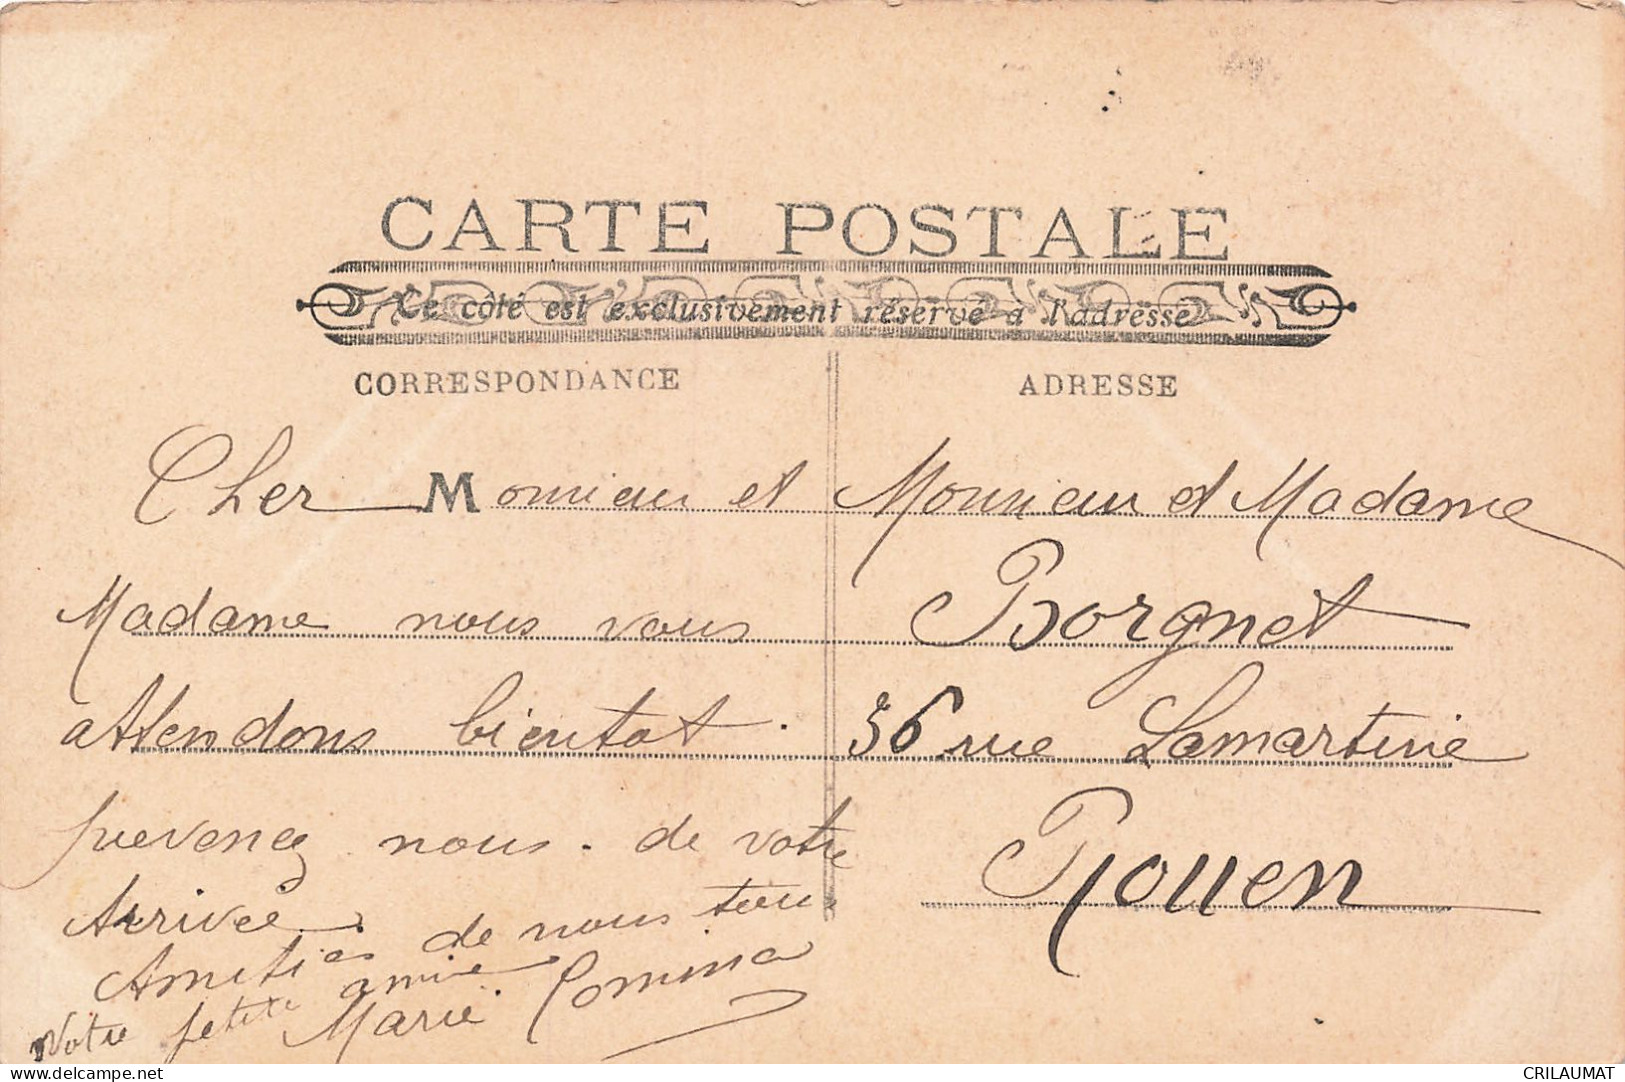 CARTE POSTALE
Ce côté est exclusivement réservé à l'adresse
CORRESPONDANCE
ADRESSE
Cher Monsieur et
Madame nous vous
attendons bientot.
prevenez nous. de votre
Arrivée.
Amitiés de nous tous
Votre petite amie
Marie Comina
Monsieur et Madame
Borgnet
36 rue Lamartine
Rouen
www.delcampe.net
CRILAUMAT